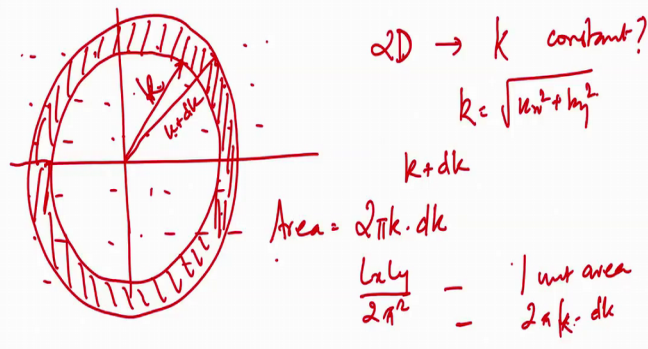 2D → k constant?
k = √kx²+ky²
k
k+dk
k+dk
Area = 2πk·dk
LxLy/2π² = / unit area
= 2πk·dk